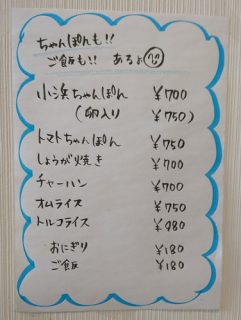 ちゃんぽんも!!
ご飯も!! あるよ
小浜ちゃんぽん ¥700
(卵入り ¥750)
トマトちゃんぽん ¥750
しょうが焼き ¥700
チャーハン ¥700
オムライス ¥750
トルコライス ¥980
おにぎり ¥180
ご飯 ¥180